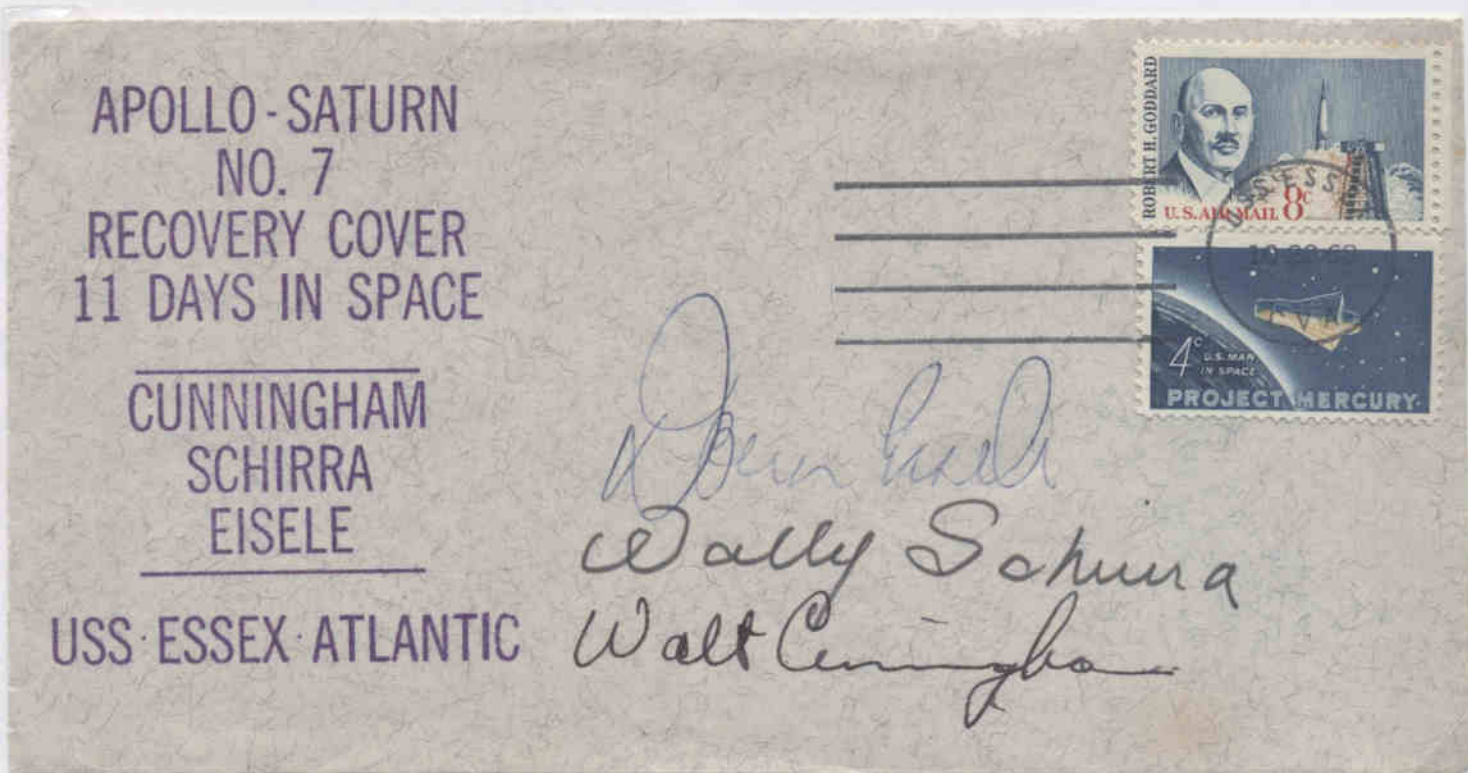 APOLLO-SATURN
NO. 7
RECOVERY COVER
11 DAYS IN SPACE
CUNNINGHAM
SCHIRRA
EISELE
USS·ESSEX·ATLANTIC
ROBERT H. GODDARD
U.S. AIR MAIL 8c
4c U.S. MAN
IN SPACE
PROJECT MERCURY
Donn Eisele
Wally Schirra
Walt Cunningham